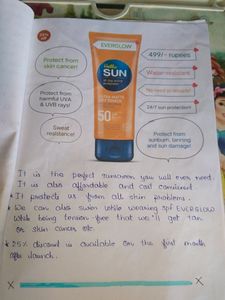 25%
EVERGLOW
Protect from
skin cancer!
499/- rupees
Hello
SUN
Water-resistant
Protect from
harmful UVA
& UVB rays!
No need to reapply!
ULTRA MATTE
50
24/7 sun protection!
Sweat
resistance!
Protect from
sunburn, tanning
and sun damage!
It is the perfect sunscreen you will ever need.
It is also affordable and
It protects us from all skin problems.
We can also swim while wearing spf EVERGLOW
while being tension-free that we'll get tan
or skin cancer etc.
25% discount is available on the first month
after launch.
X X